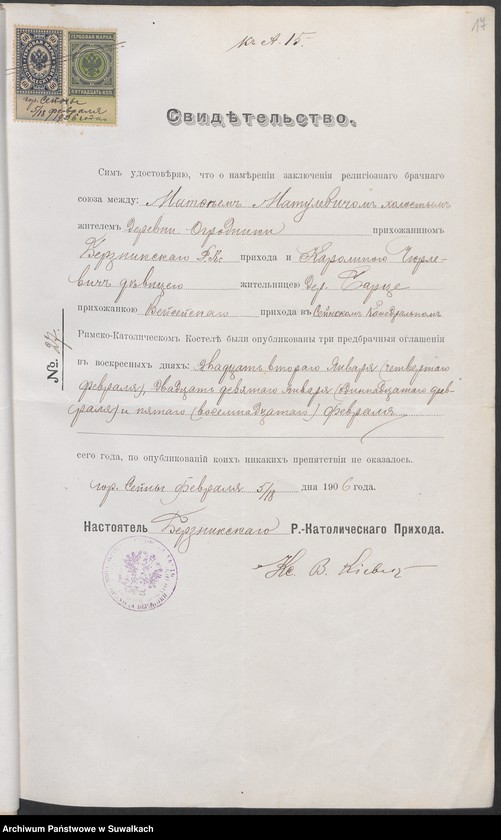 17
къ А. 15.
ГЕРБОВАЯ МАРКА
ПЯТНАДЦАТЬ КОП.
60
гор. Сейны
5/18 февраля
1906 года.
Свидѣтельство.
Симъ удостовѣряю, что о намѣреніи заключенія религіознаго брачнаго
союза между: Матеемъ Матулевичомъ холостымъ
жителемъ Деревни Огродники прихожаниномъ
Берзникскаго Р.К. прихода и Каролиною Чюрле-
вичъ дѣвицею жительницею Дер.
прихожанкою Вейсейскаго прихода въ Сейнскомъ Каѳедральномъ
Римско-Католическомъ Костелѣ были опубликованы три предбрачныя оглашенія
въ воскресныхъ дняхъ: Двадцать втораго Января (четвертаго
февраля), двадцать девятаго Января (одиннадцатаго фев-
раля) и пятаго (восемнадцатаго) февраля
№ 27.
сего года, по опубликованіи коихъ никакихъ препятствій не оказалось.
гор. Сейны февраля 5/18 дня 1906 года.
Настоятель Берзникскаго Р.-Католическаго Прихода.
Кс. В.
Archiwum Państwowe w Suwałkach